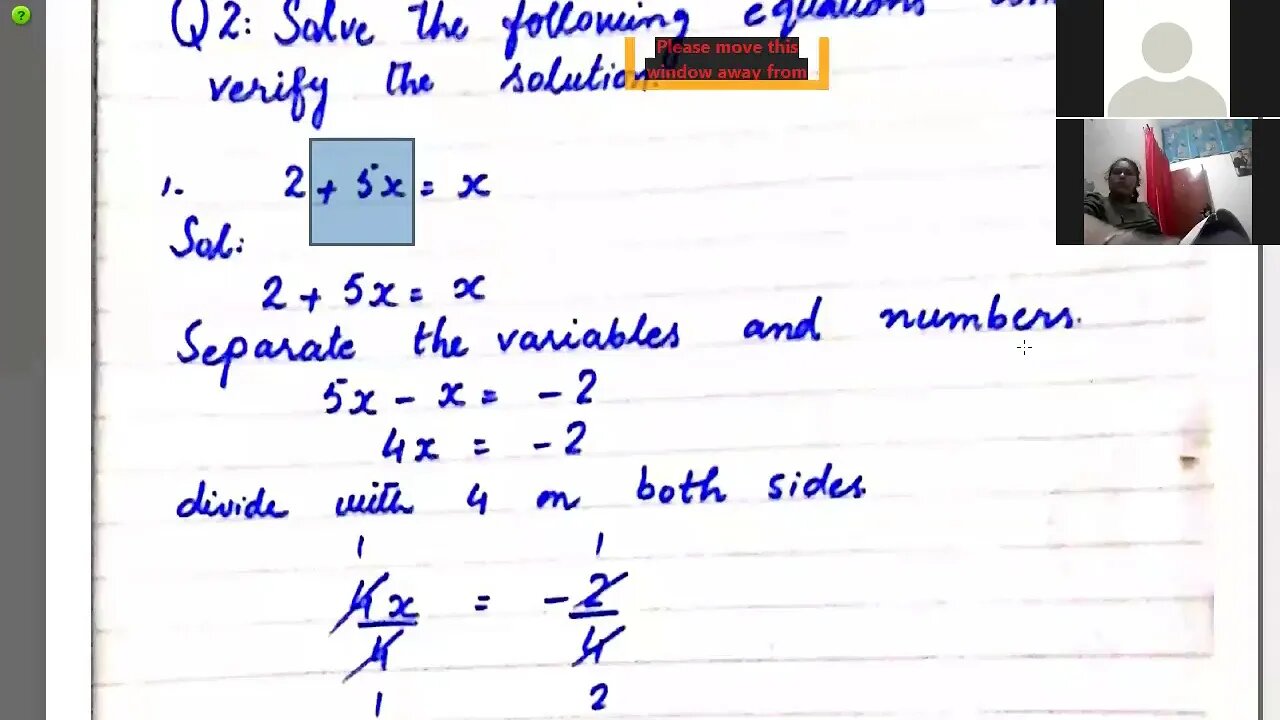 Q2: Solve the following equations
verify the solution.
Please move this
window away from
1. 2 + 5x = x
Sol:
2 + 5x = x
Separate the variables and numbers.
5x - x = - 2
4x = - 2
divide with 4 on both sides.
1 1
4x/4 = - 2/4
1 2